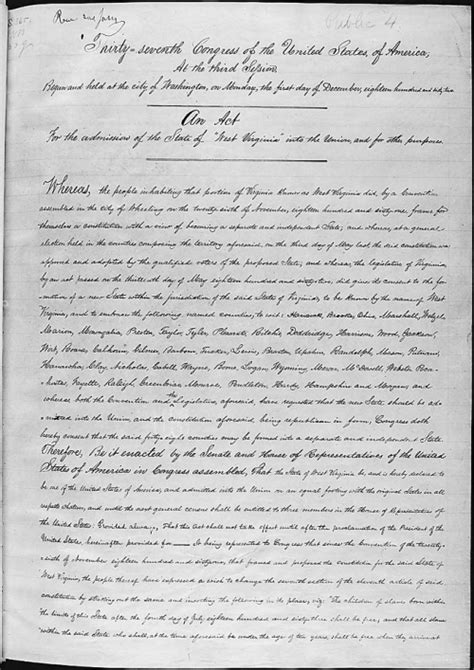 Public 4
Thirty-seventh Congress of the United States, of America,
At the third Session,
Begun and held at the city of Washington, on Monday, the first day of December, eighteen hundred and sixty two
An Act
For the admission of the State of "West Virginia" into the Union, and for other purposes.
Whereas, the people inhabiting that portion of Virginia known as West Virginia did, by a Convention
assembled in the city of Wheeling on the twenty sixth of November, eighteen hundred and sixty one, frame for
themselves a constitution with a view of becoming a separate and independent State; and whereas, at a general
election held in the counties composing the territory aforesaid, on the third day of May last, the said constitution was
approved and adopted by the qualified voters of the proposed State; and whereas, the legislature of Virginia,
by an act passed on the thirteenth day of May eighteen hundred and sixty two, did give its consent to the for-
mation of a new State within the jurisdiction of the said State of Virginia, to be known by the name of West
Virginia, and to embrace the following named counties, to wit: Hancock, Brooke, Ohio, Marshall, Wetzel,
Marion, Monongalia, Preston, Taylor, Tyler, Pleasants, Ritchie, Doddridge, Harrison, Wood, Jackson,
Wirt, Roane, Calhoun, Gilmer, Barbour, Tucker, Lewis, Braxton, Upshur, Randolph, Mason, Putnam,
Kanawha, Clay, Nicholas, Cabell, Wayne, Boone, Logan, Wyoming, Mercer, McDowell, Webster, Poca-
hontas, Fayette, Raleigh, Greenbrier, Monroe, Pendleton, Hardy, Hampshire and Morgan; and
whereas both the Convention and the Legislature aforesaid, have requested that the new State should be ad-
mitted into the Union, and the constitution aforesaid being republican in form, Congress doth
hereby consent that the said forty eight counties may be formed into a separate and independent State.
Therefore, Be it enacted by the Senate and House of Representatives of the United
States of America in Congress assembled, That the State of West Virginia be, and is hereby declared to
be one of the United States of America, and admitted into the Union on an equal footing with the original States in all
respects whatever, and until the next general census shall be entitled to three members in the House of Representatives of
the United States: Provided, always, That this act shall not take effect until after the proclamation of the President of the
United States, hereinafter provided for. It being represented to Congress that since the Convention of the twenty-
sixth of November, eighteen hundred and sixty one, that framed and proposed the constitution for the said State of
West Virginia, the people thereof have expressed a wish to change the seventh section of the eleventh article of said
constitution by striking out the same and inserting the following in its place, viz: The children of slaves born within
the limits of this State after the fourth day of July, eighteen hundred and sixty three shall be free; and that all slaves
within the said State who shall, at the time aforesaid be under the age of ten years, shall be free when they arrive at